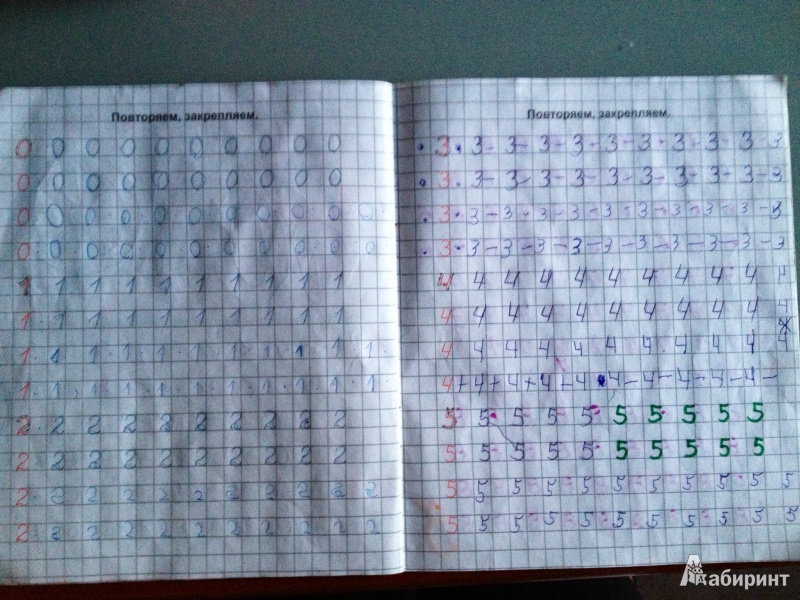 Повторяем, закрепляем.
0 0 0 0 0 0 0 0 0 0
0 0 0 0 0 0 0 0 0 0
0 0 0 0 0 0 0 0 0 0 0
0 0 0 0 0 0 0 0 0 0 0
1 1 1 1 1 1 1 1 1 1
1 1 1 1 1 1 1 1 1 1
1 1 1 1 1 1 1 1 1 1 1
1 1 1 1 1 1 1 1 1 1 1
2 2 2 2 2 2 2 2 2 2
2 2 2 2 2 2 2 2 2 2
2 2 2 2 2 2 2 2 2 2 2
2 2 2 2 2 2 2 2 2 2 2
Повторяем, закрепляем.
· 3 · 3 - 3 - 3 - 3 - 3 - 3 - 3 - 3 - 3 - 3
· 3 · 3 - 3 - 3 - 3 - 3 - 3 - 3 - 3 - 3 - 3
· 3 · 3 - 3 - 3 - 3 - 3 - 3 - 3 - 3 - 3 - 3
· 3 · 3 - 3 - 3 - 3 - 3 - 3 - 3 - 3 - 3 - 3
4 4 4 4 4 4 4 4 4 4 4
4 4 4 4 4 4 4 4 4 4 4
4 4 4 4 4 4 4 4 4 4 4
4 + 4 + 4 + 4 + 4 · 4 - 4 - 4 - 4 - 4 -
5 5 5 5 5 5 5 5 5 5
5 5 5 5 5 5 5 5 5 5
5 5 5 5 5 5 5 5 5 5 5
5 5 5 5 5 5 5 5 5 5 5
Лабиринт